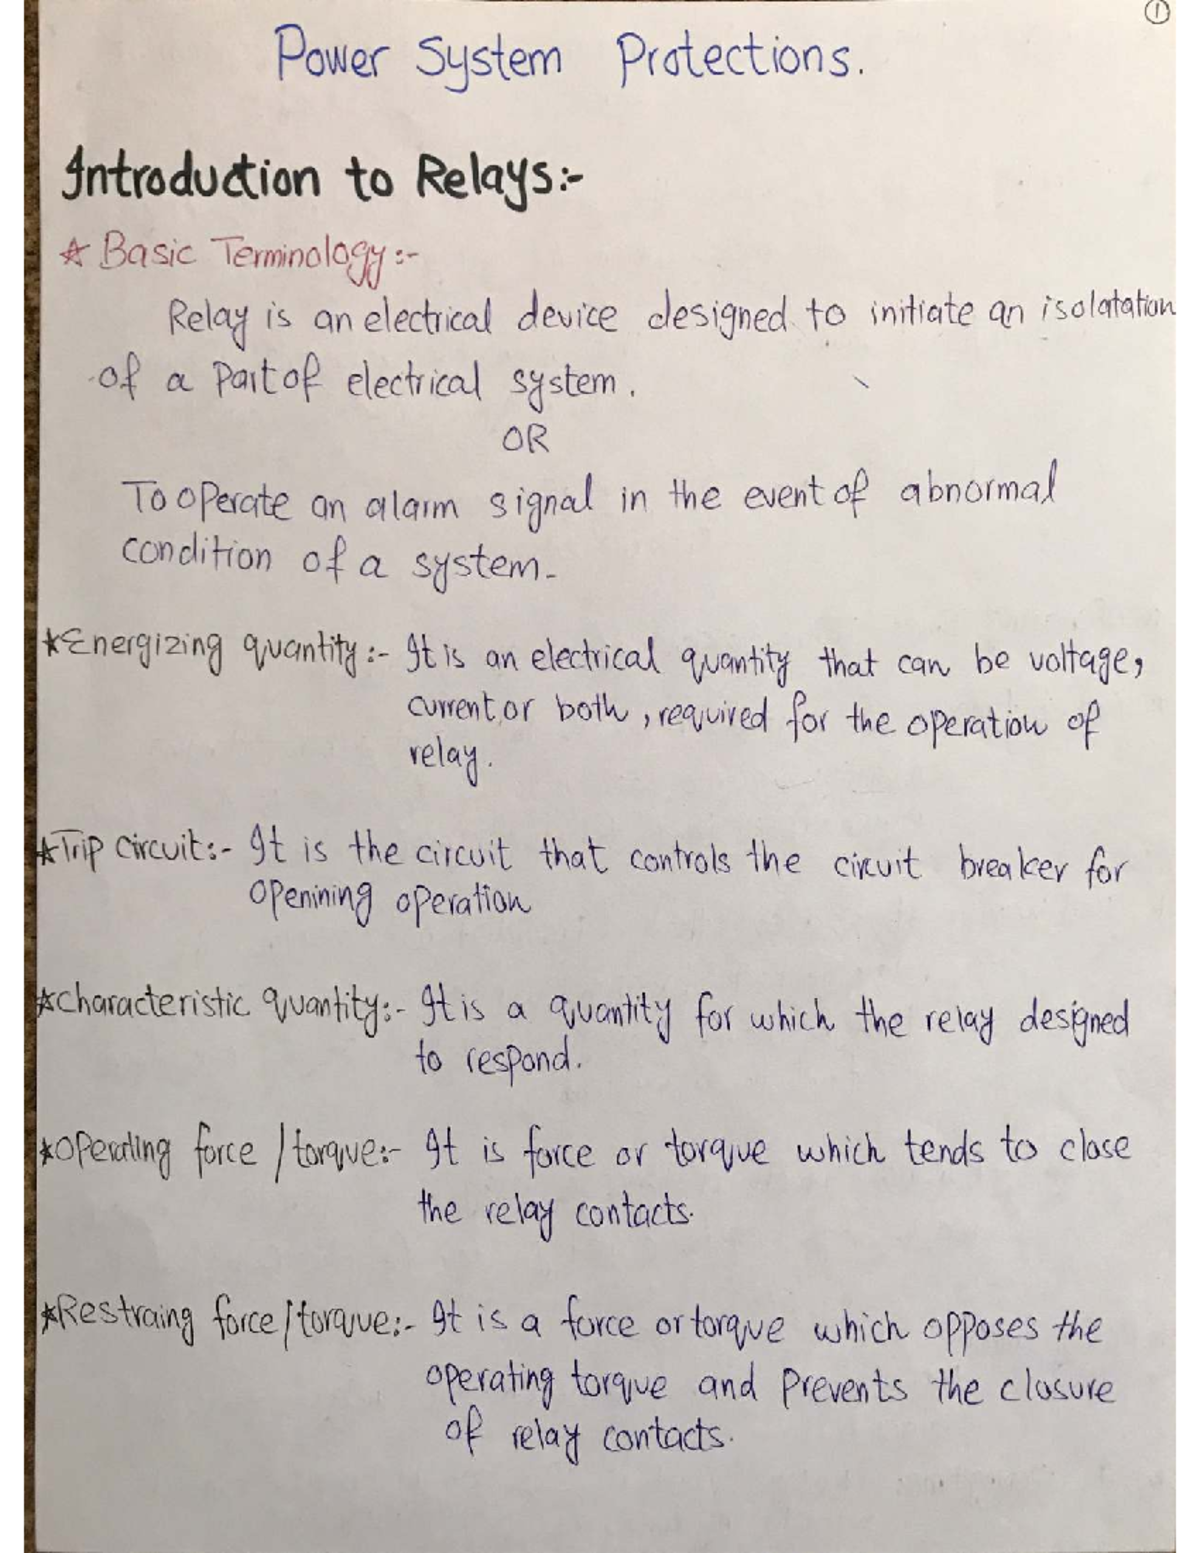 ①
Power System Protections.
Introduction to Relays:-
☆ Basic Terminology:-
Relay is an electrical device designed to initiate an isolatation
of a Part of electrical system.
OR
To operate an alarm signal in the event of abnormal
condition of a system.
★Energizing quantity:- It is an electrical quantity that can be voltage,
current or both, required for the operation of
relay.
★Trip Circuit:- It is the circuit that controls the circuit breaker for
Openining operation
★characteristic quantity:- It is a quantity for which the relay designed
to respond.
★Operating force / torque:- It is force or torque which tends to close
the relay contacts.
★Restraing force/torque:- It is a force or torque which opposes the
operating torque and Prevents the closure
of relay contacts.